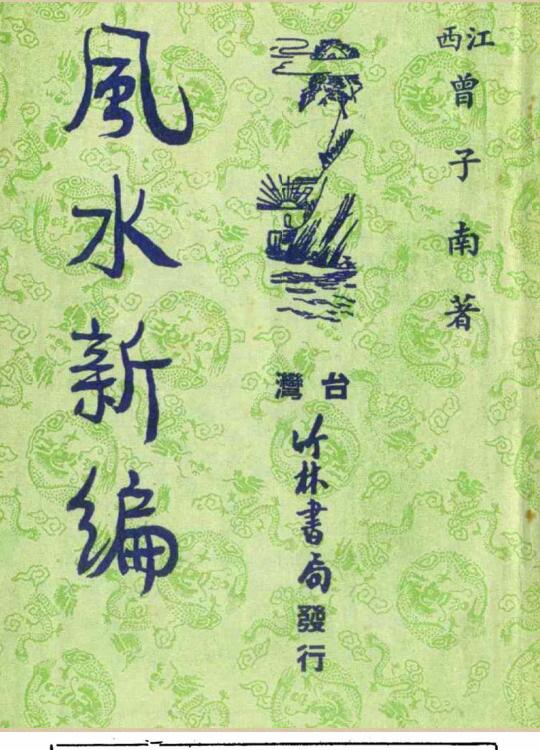 江西
曾子南著
台灣
竹林書局發行
風水新編